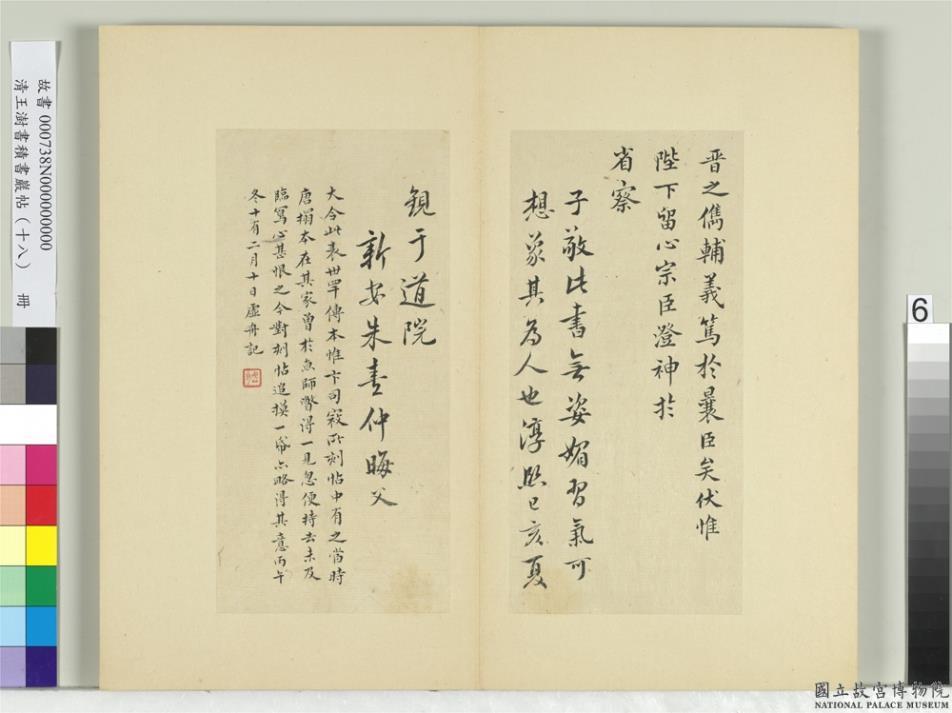 晉之儁輔義篤於曩臣矣伏惟
陛下留心宗臣澄神於
省察
子敬此書無姿媚習氣可
想象其為人也淳熙己亥夏
觀于道院
新安朱熹仲晦父
大令此表世罕傳本惟卞司寇所刻帖中有之當時
唐搨本在其家曾於魚師弊得一見忽便持去未及
臨寫心甚恨之今對刻帖追摸一帋亦略得其意丙午
冬十有二月十日虛舟記
故書 000738N000000000
清王澍書積書巖帖(十八) 冊
6
國立故宮博物院
NATIONAL PALACE MUSEUM